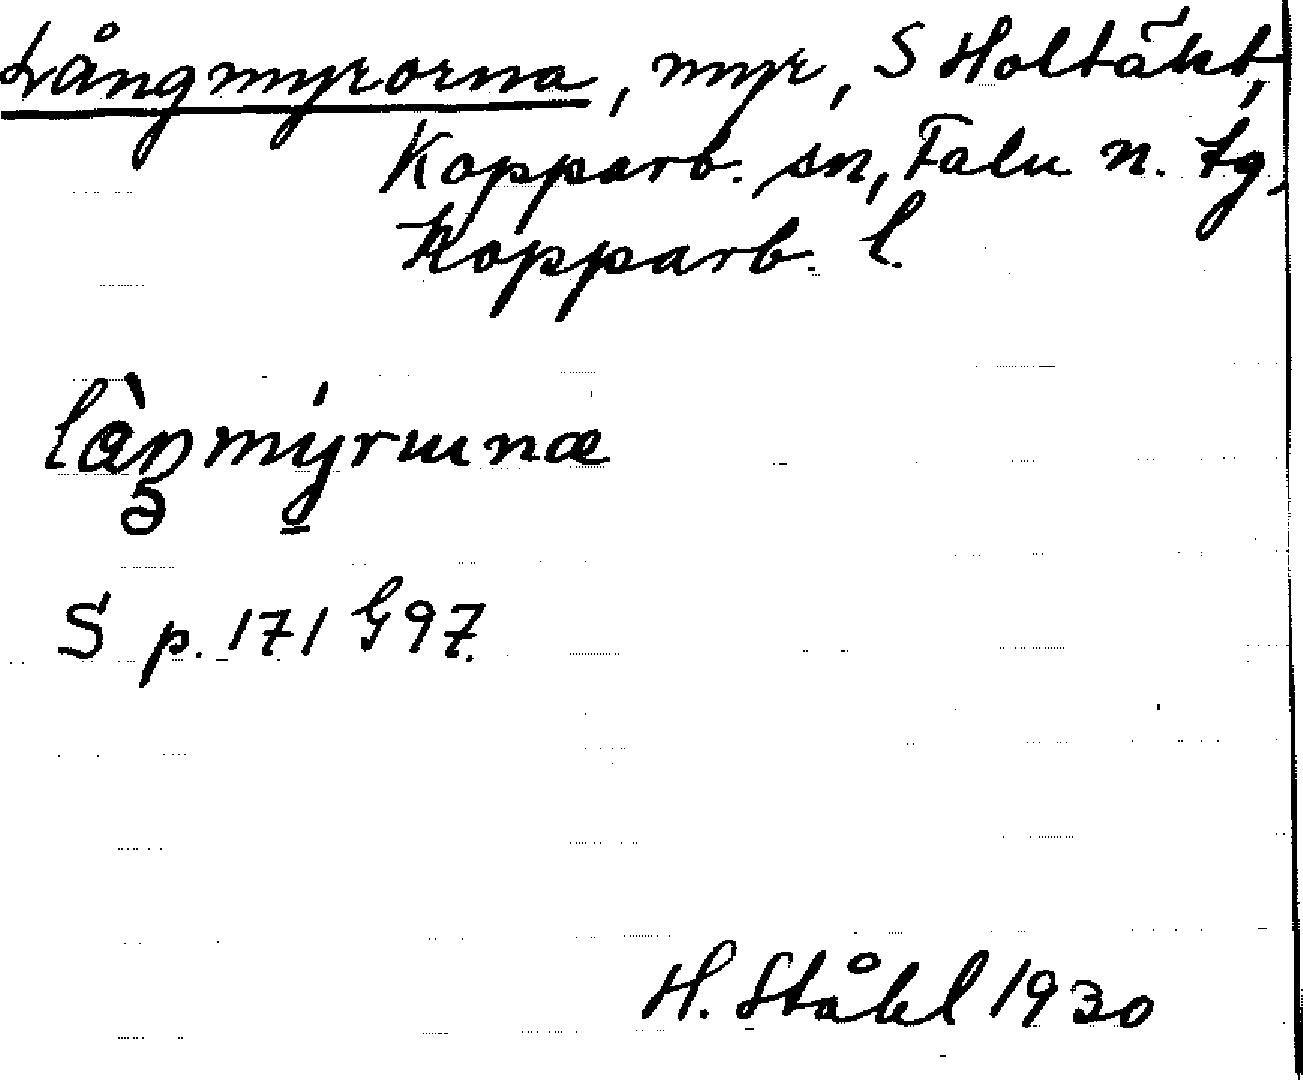 Långmyrorna, myr, S Holtäkt,
Kopparb. sn, Falu n. tg,
Kopparb. l.
S p. 171 G 97.
H. Ståhl 1930